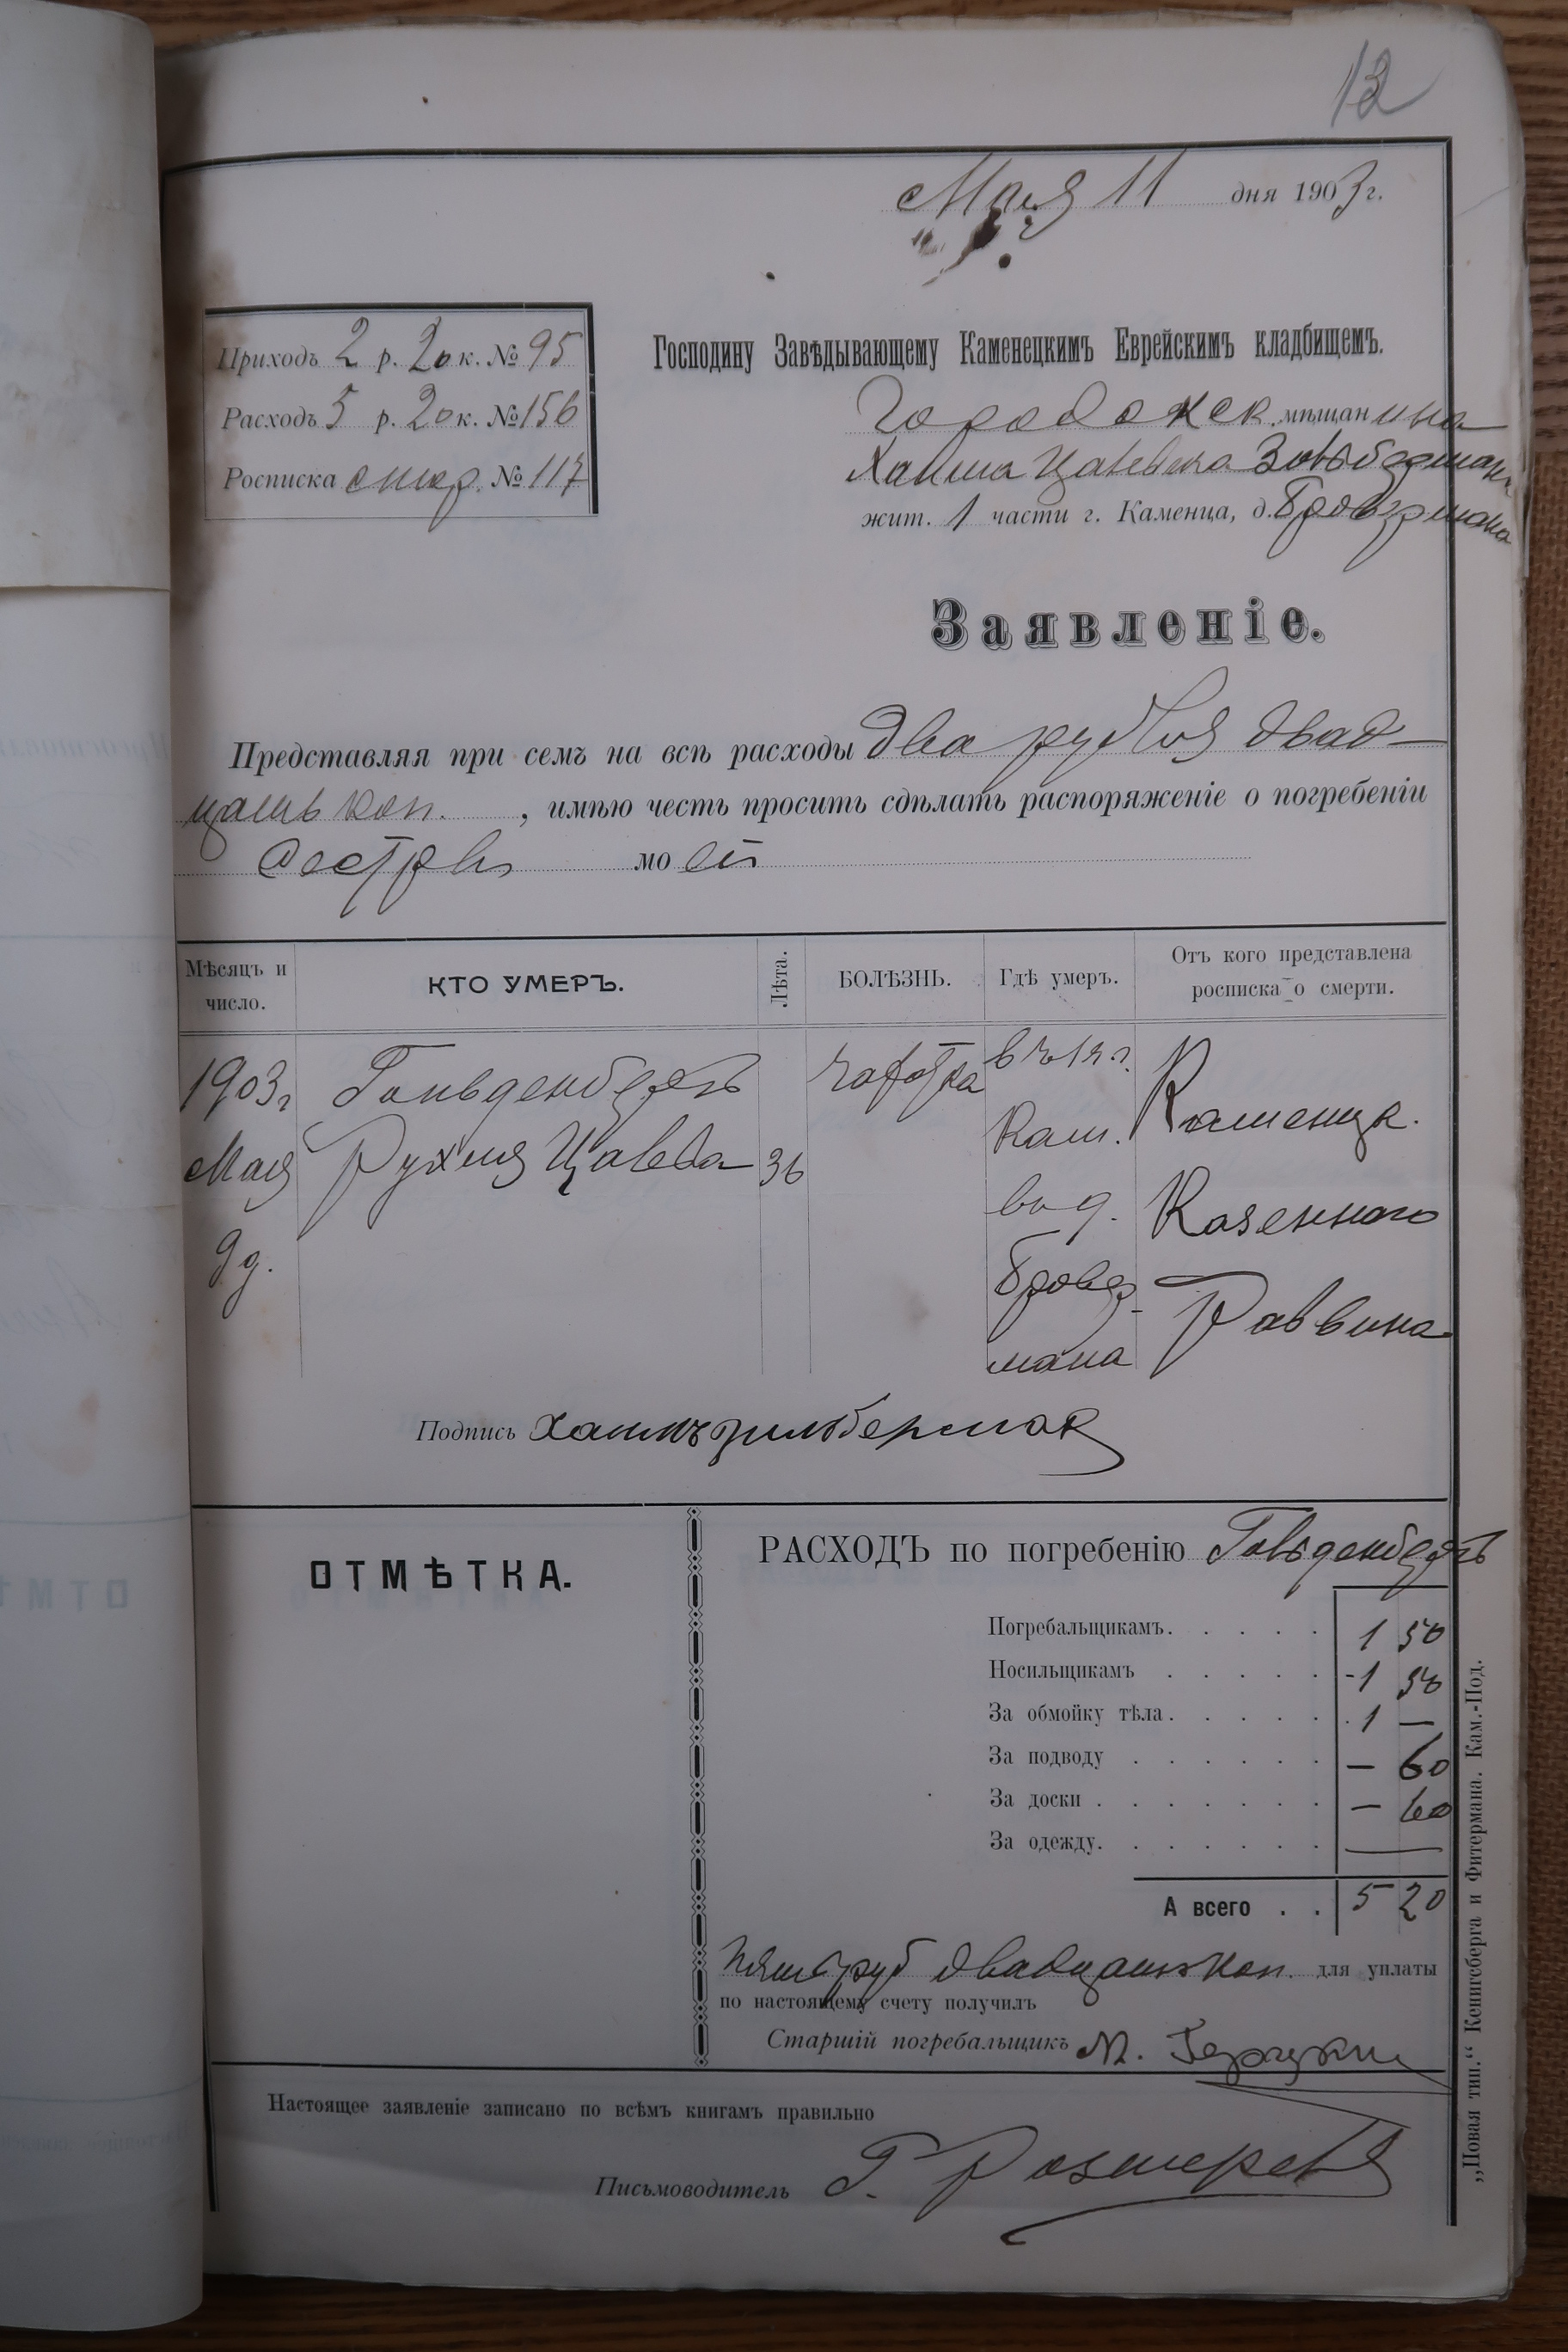 Мая 11 дня 1903 г.
Приходъ 2 р. 20 к. № 95
Расходъ 5 р. 20 к. № 156
Росписка № 117
Господину Завѣдывающему Каменецкимъ Еврейскимъ кладбищемъ.
Городокск. мѣщанина
Хаима
жит. 1 части г. Каменца, д. Бровермана
Заявленіе.
Представляя при семъ на всѣ расходы два рубля двад-
цать коп. , имѣю честь просить сдѣлать распоряженіе о погребеніи
сестры моей
Мѣсяцъ и число.
КТО УМЕРЪ.
Лѣта.
БОЛѢЗНЬ.
Гдѣ умеръ.
Отъ кого представлена росписка о смерти.
1903 г
Мая
9 д.
Гольденбергъ
Рухля
36
Чахотка
Кам.
въ д.
Бровер-
мана
Каменецк.
Казеннаго
Раввина
Подпись Хаимъ Зильберман
ОТМѢТКА.
РАСХОДЪ по погребенію Гольденбергъ
Погребальщикамъ. . . . . 1 50
Носильщикамъ . . . . . 1 50
За обмойку тѣла. . . . . 1 —
За подводу . . . . . . — 60
За доски . . . . . . . — 60
За одежду. . . . . . . —
А всего . . 5 20
Пять руб двадцать коп. для уплаты
по настоящему счету получилъ
Старшій погребальщикъ М.
Настоящее заявленіе записано по всѣмъ книгамъ правильно
Письмоводитель Г.
„Новая тип.“ Кенигсберга и Фитермана. Кам.-Под.